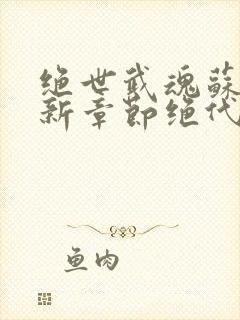 绝世武魂蘇
新章節绝代
鱼肉